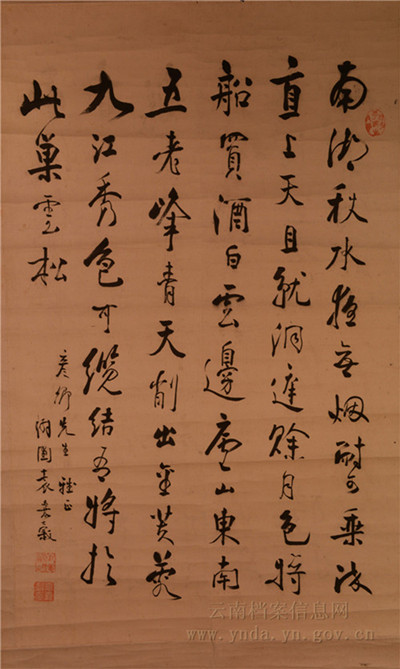 南湖秋水夜无烟耐可乘流
直上天且就洞庭賒月色將
船買酒白雲邊廬山東南
五老峰青天削出金芙蓉
九江秀色可纜結吾將於
此巢雲松
彥卿先生雅正
澍圃袁嘉穀
云南档案信息网
www.ynda.yn.gov.cn